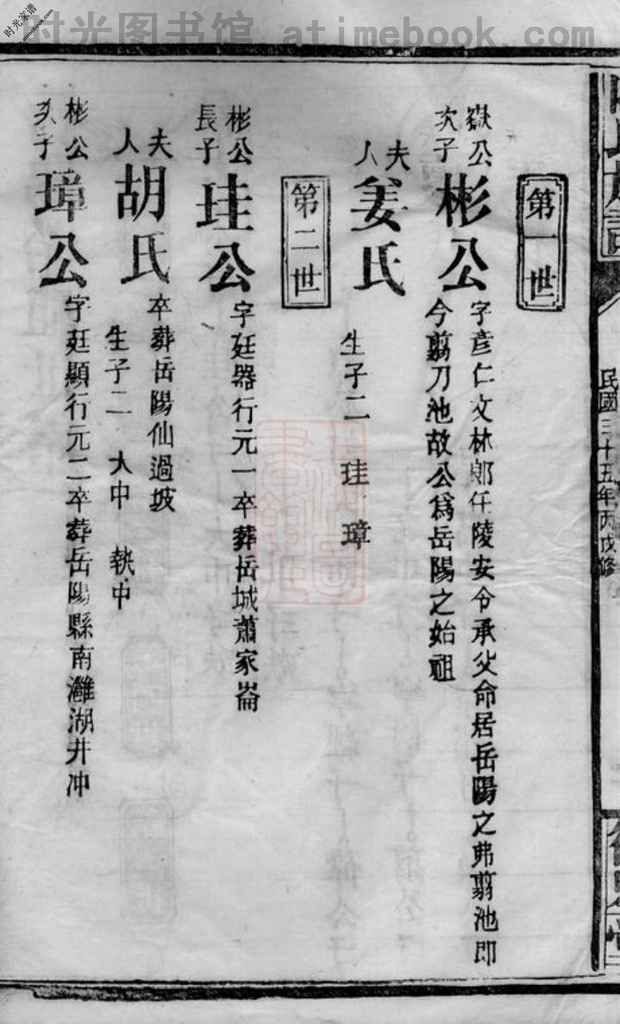 时光图书馆 atimebook.com
时光家谱
民國三十五年丙戌修
第一世
嶽公次子
彬公
字彥仁文林郎任陵安令承父命居岳陽之弗翦池即
今翦刀池故公爲岳陽之始祖
夫人
姜氏
生子二 珪 璋
第二世
彬公長子
珪公
字廷器行元一卒葬岳城蕭家崙
夫人
胡氏
卒葬岳陽仙過坡
生子二 大中 執中
彬公次子
璋公
字廷顯行元二卒葬岳陽縣南灉湖井冲